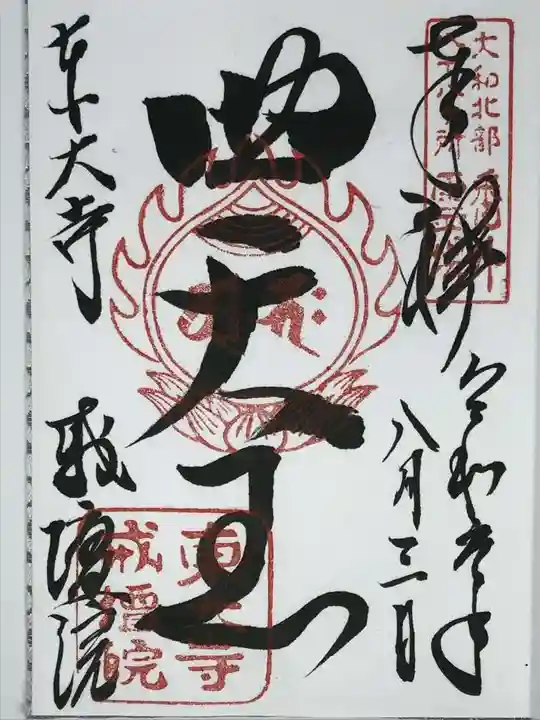 奉拝
令和年
八月三日
四天王
東大寺 戒壇院
大和北部
東大寺
戒壇院